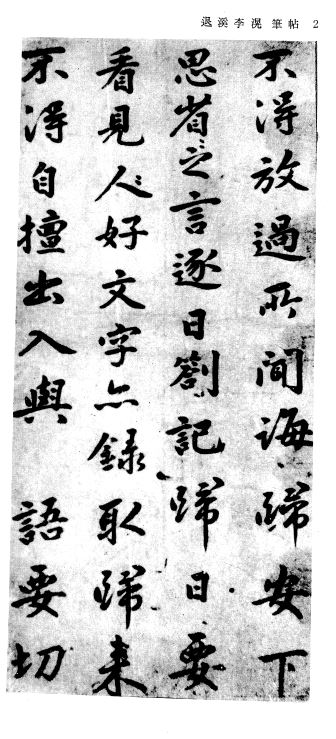 退溪李滉筆帖 2
不得放過所聞誨歸安下
思省之言逐日劄記歸日要
看見人好文字亦錄取歸來
不得自擅出入與 語要切